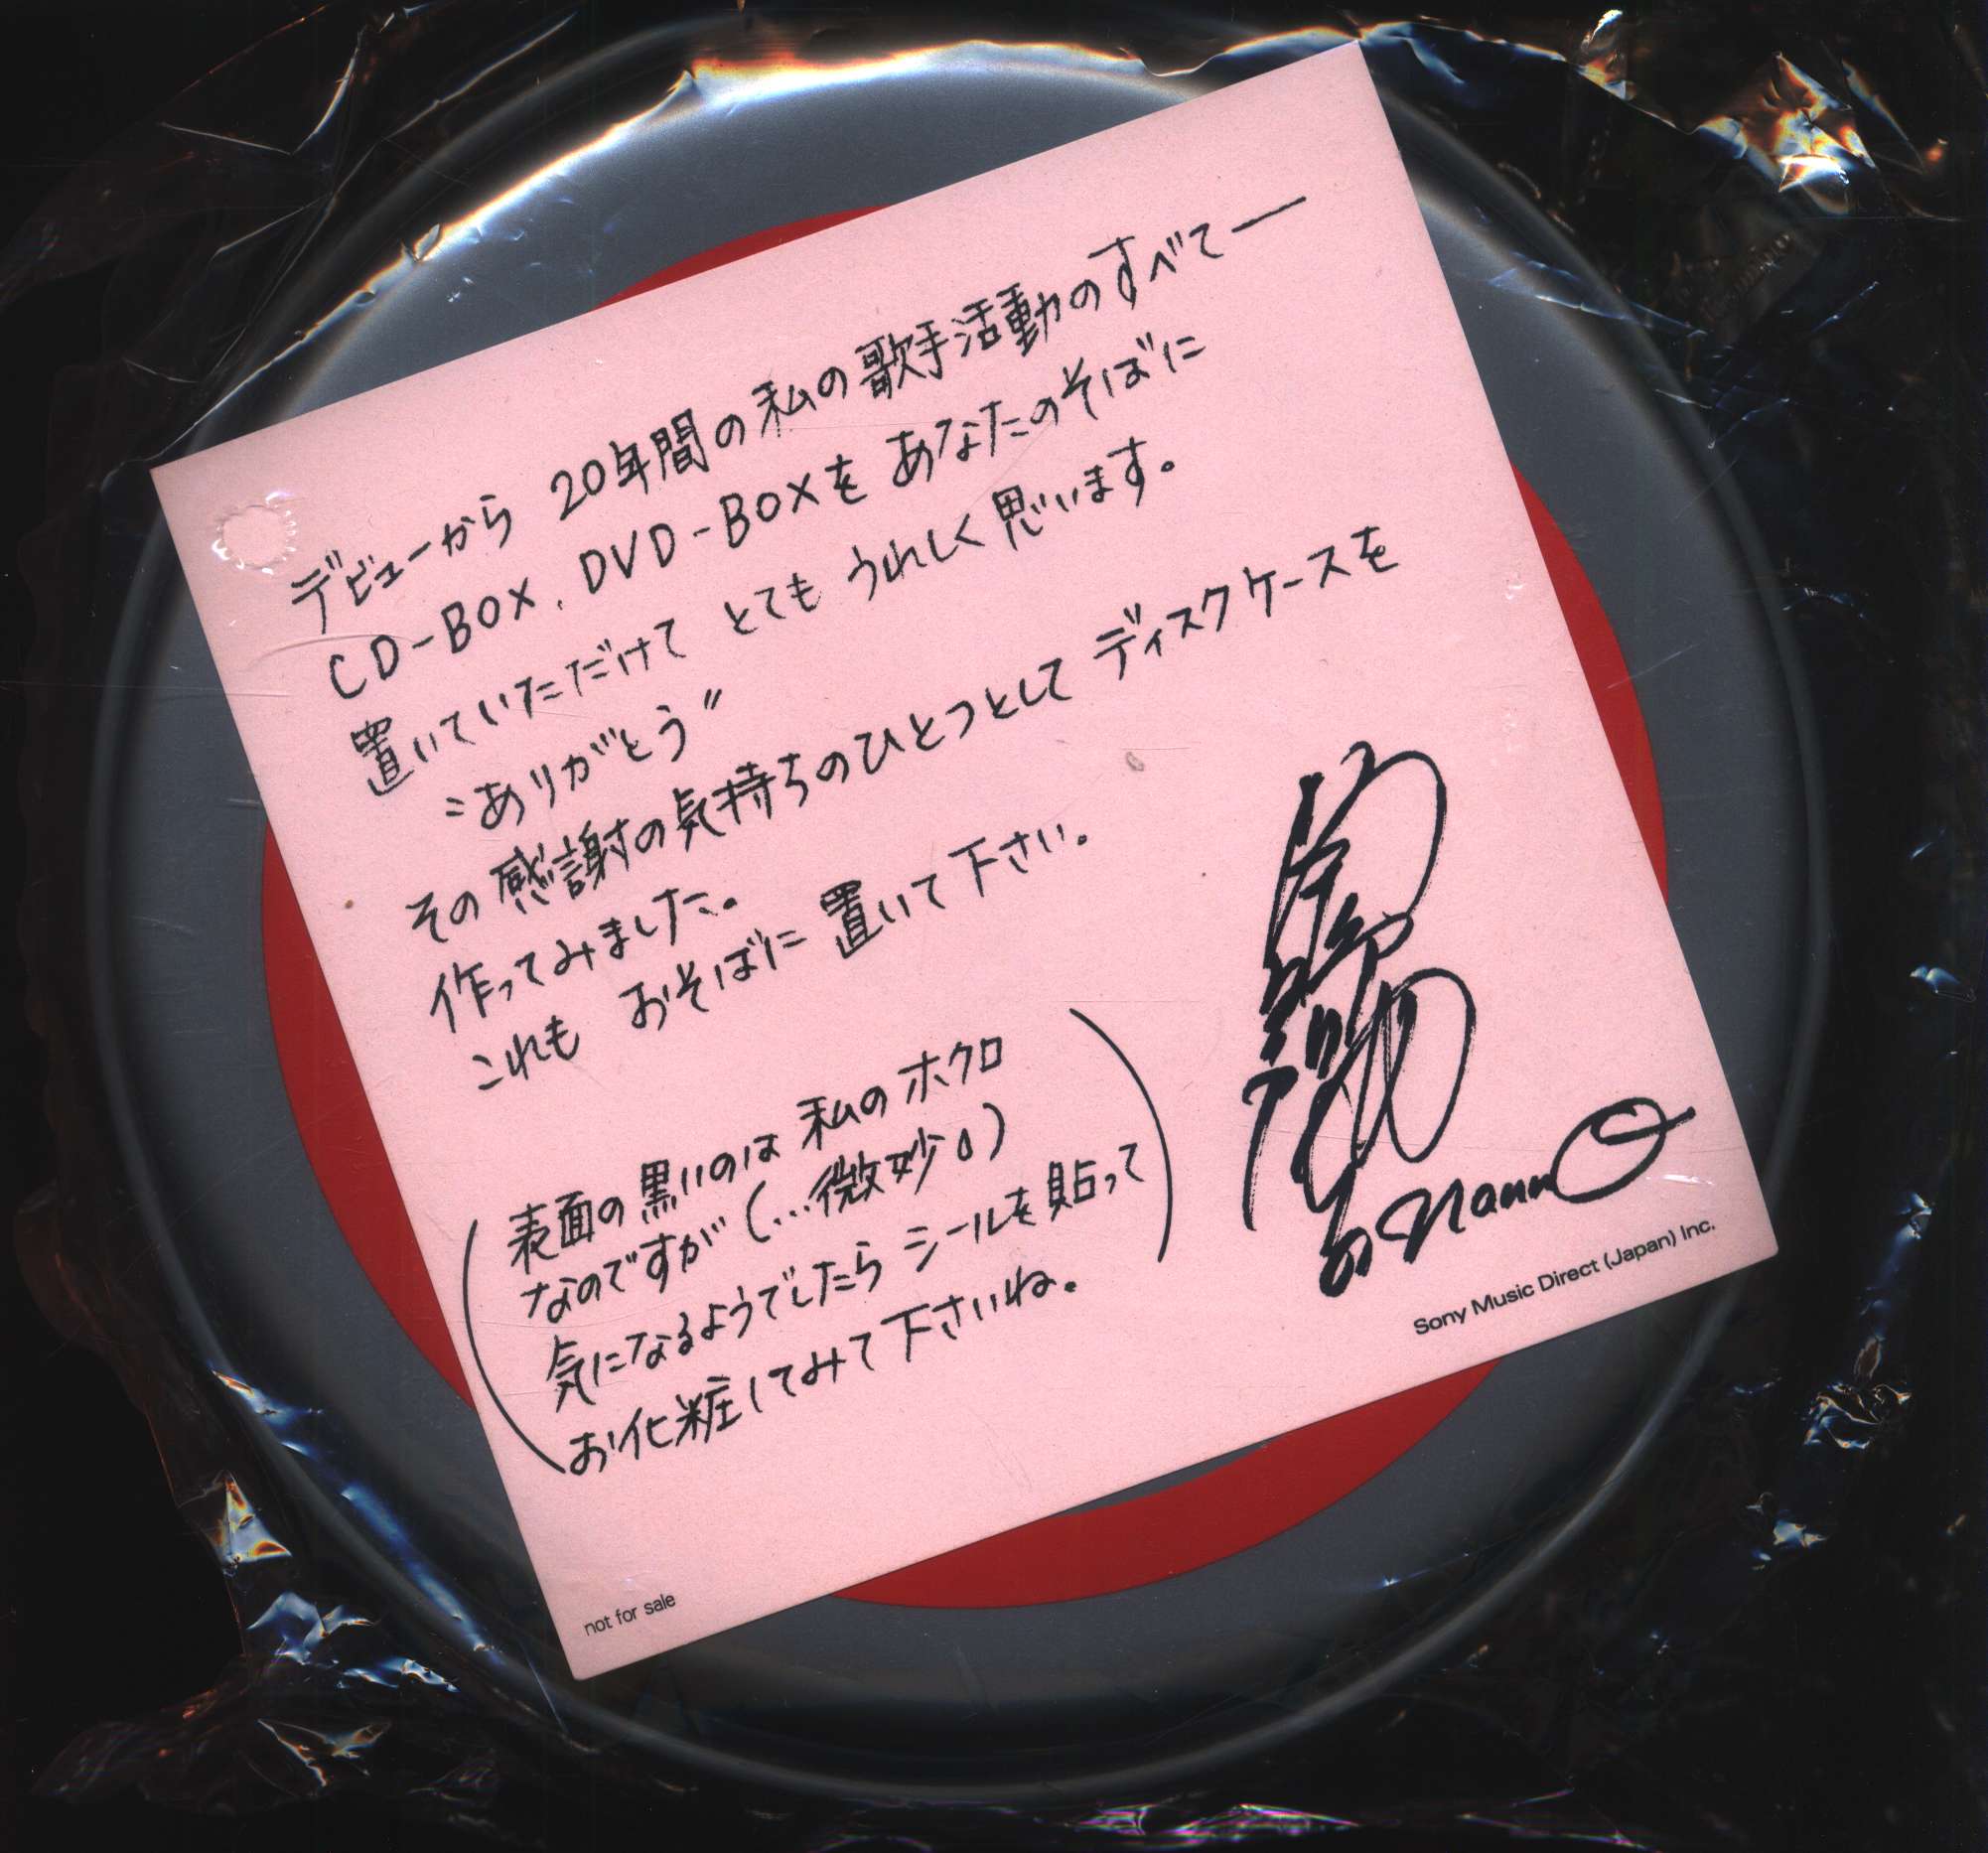 デビューから 20年間の私の歌手活動のすべて──
CD-BOX、DVD-BOXを あなたのそばに
置いていただけて とても うれしく思います。
〝ありがとう〟
その感謝の気持ちのひとつとして ディスクケースを
作ってみました。
これも おそばに 置いて下さい。
(表面の黒いのは 私のホクロ
なのですが(…微妙。)
気になるようでしたら シールを貼って
お化粧してみて下さいね。)
南野陽子
nanno
Sony Music Direct (Japan) Inc.
not for sale